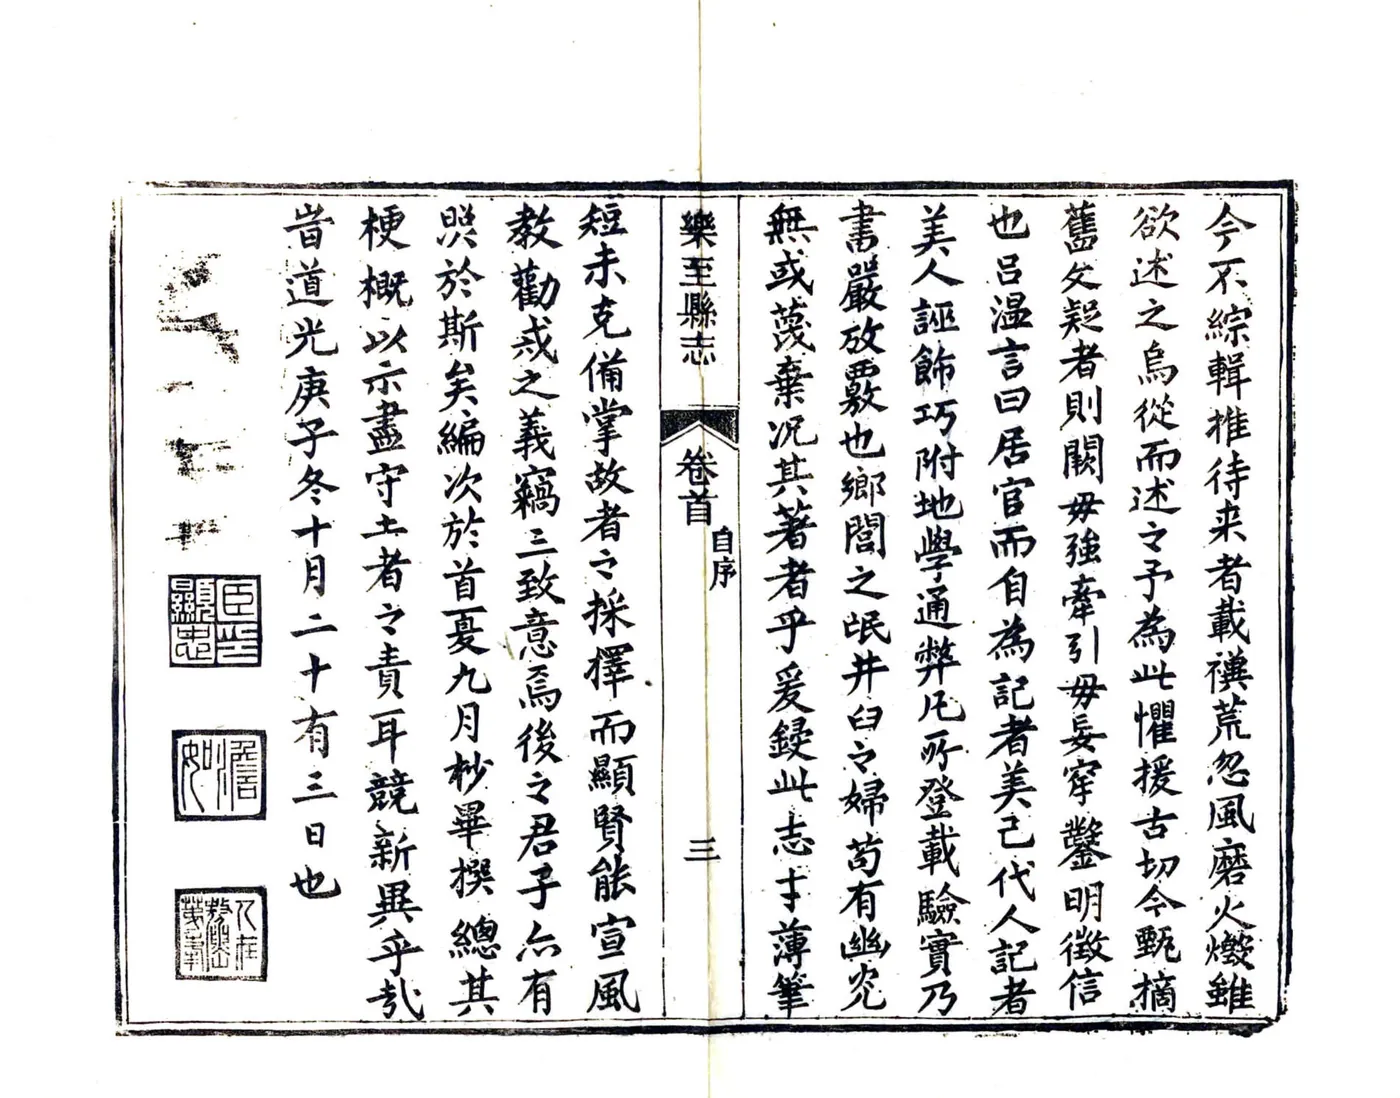 今不綜輯推待来者載禩荒忽風磨火燬雖
欲述之烏從而述之予為此懼援古切今甄摘
舊文疑者則闕毋強牽引毋妄穿鑿明徵信
也吕温言曰居官而自為記者美己代人記者
美人誣飾巧附地學通弊凡所登載驗實乃
書嚴放覈也鄉閭之氓井臼之婦苟有幽光
無或蔑棄况其著者乎爰録此志才薄筆
樂至縣志
卷首
自序
三
短未克備掌故者之採擇而顯賢能宣風
教勸戒之義竊三致意焉後之君子亦有
㷖於斯矣編次於首夏九月杪畢撰總其
梗概以示盡守土者之責耳競新異乎哉
旹道光庚子冬十月二十有三日也
臣印
顯忠
澹
如